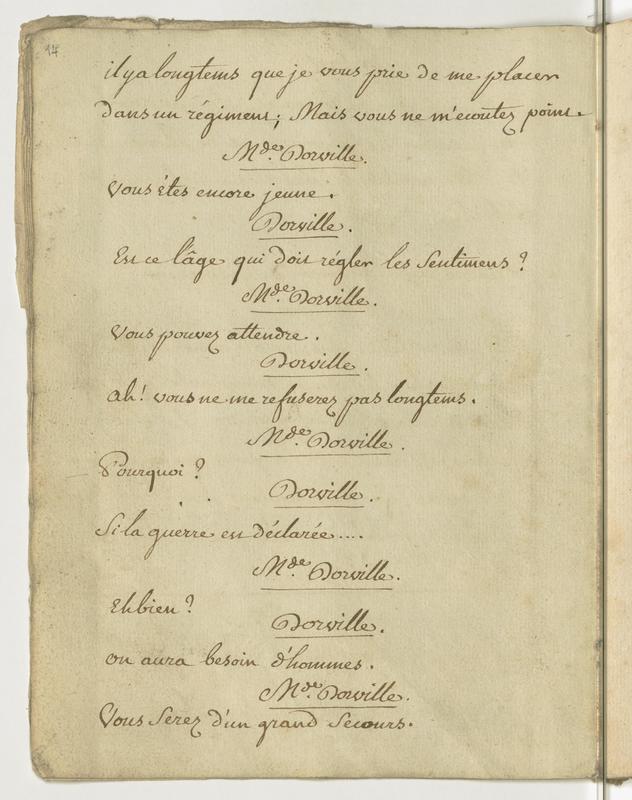 14
il ya longtems que je vous prie de me placer
dans un régiment; Mais vous ne m'ecoutez point.
Mde. Dorville.
Vous étes encore jeune.
Dorville.
Est ce l'âge qui doit régler les Sentimens?
Mde. Dorville.
Vous pouvez attendre.
Dorville.
ah! vous ne me refuserez pas longtems.
Mde. Dorville.
Pourquoi?
Dorville.
Si la guerre est déclarée....
Mde. Dorville.
Eh bien?
Dorville.
on aura besoin d'hommes.
Mde. Dorville.
Vous Serez d'un grand Secours.